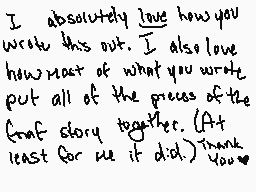 I absolutely love how you
wrote this out. I also love
how most of what you wrote
put all of the pieces of the
fnaf story together. (At
least for me it did.) Thank
You ♥